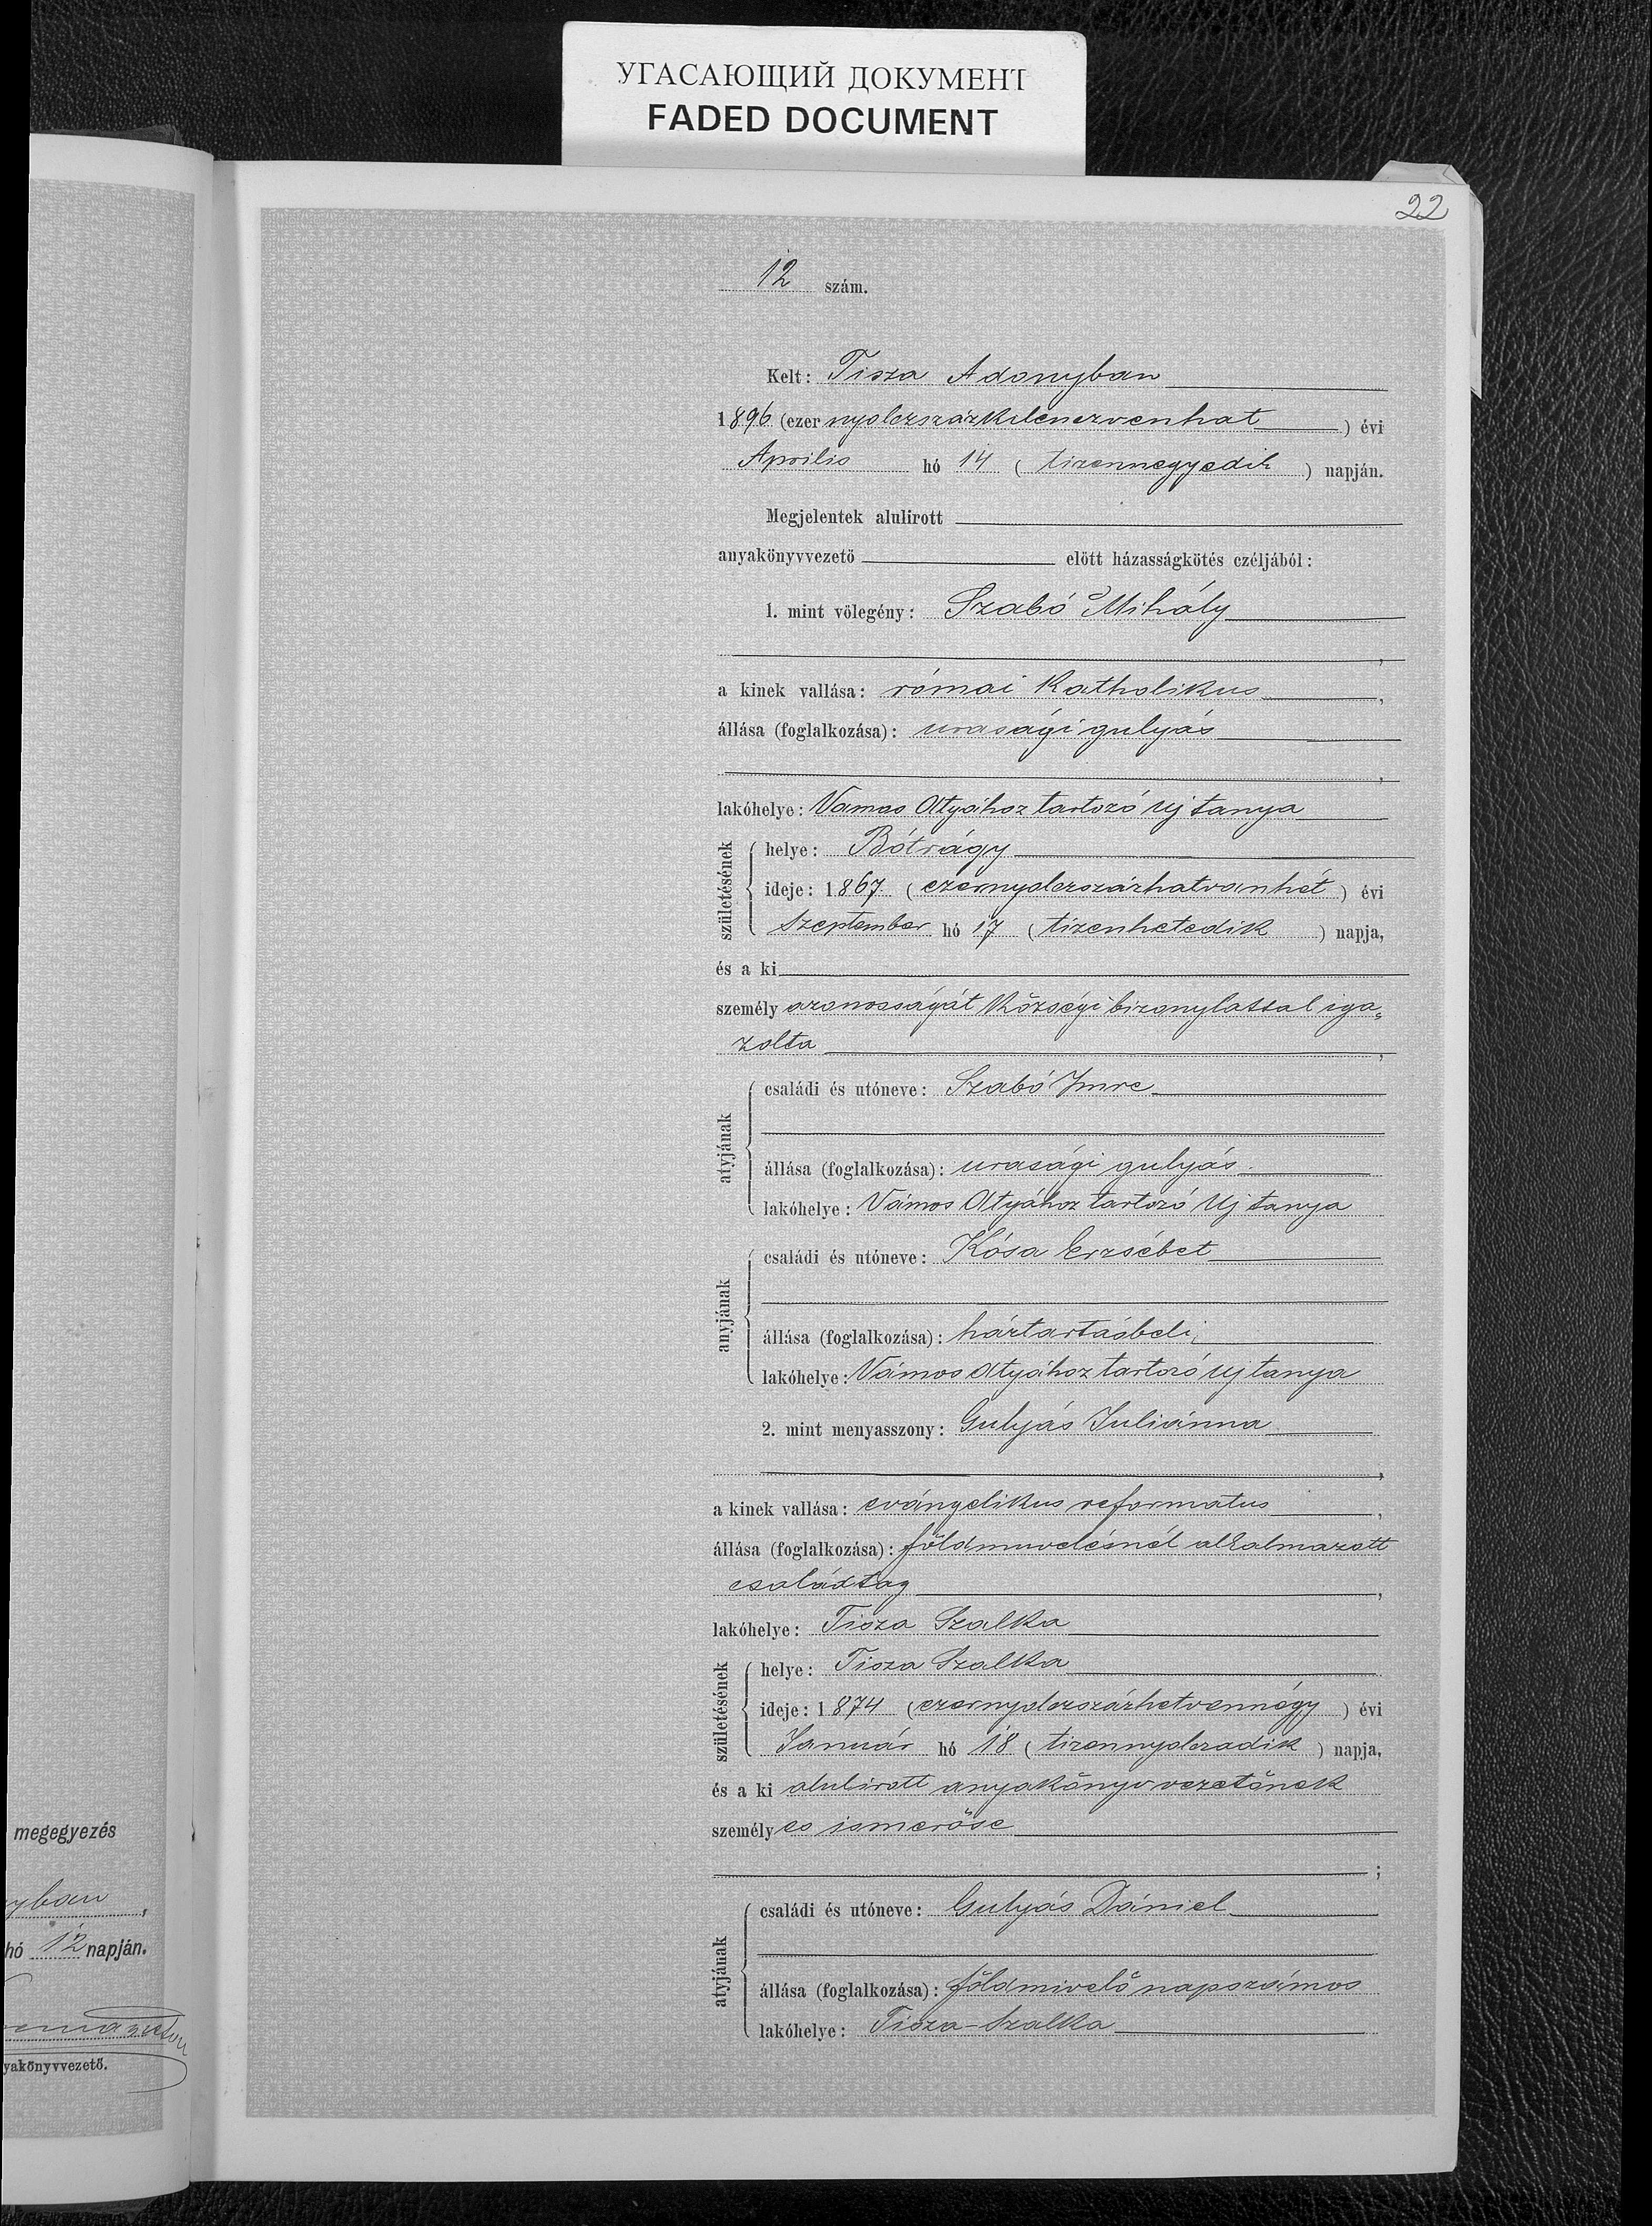 УГАСАЮЩИЙ ДОКУМЕНТ
FADED DOCUMENT
22
12 szám.
Kelt: Tisza Adonyban
1896 (ezer nyolczszázkilenczvenhat) évi
Aprilis hó 14 (tizennegyedik) napján.
Megjelentek alulirott
anyakönyvvezető előtt házasságkötés czéljából:
1. mint vőlegény: Szabó Mihály
,
a kinek vallása: római katholikus,
állása (foglalkozása): urasági gulyás
,
lakóhelye: Vámos Atyához tartozó Uj tanya
születésének
helye: Bótrágy
ideje: 1867 (ezernyolczszázhatvanhét) évi
Szeptember hó 17 (tizenhetedik) napja,
és a ki
személy azonosságát községi bizonylattal iga„
zolta,
atyjának
családi és utóneve: Szabó Imre
állása (foglalkozása): urasági gulyás
lakóhelye: Vámos Atyához tartozó Uj tanya
anyjának
családi és utóneve: Kósa Erzsébet
állása (foglalkozása): háztartásbeli
lakóhelye: Vámos Atyához tartozó Uj tanya
2. mint menyasszony: Gulyás Juliánna
,
a kinek vallása: evángelikus reformatus,
állása (foglalkozása): földmuvelésnél alkalmazott
családtag,
lakóhelye: Tisza Szalka
születésének
helye: Tisza Szalka
ideje: 1874 (ezernyolczszázhetvennégy) évi
Január hó 18 (tizennyolczadik) napja,
és a ki alulirott anyakönyvvezetőnek
személyes ismerőse
;
atyjának
családi és utóneve: Gulyás Dániel
állása (foglalkozása): földmivelő napszámos
lakóhelye: Tisza-Szalka
megegyezés
yban,
hó 12 napján.
yakönyvvezető.